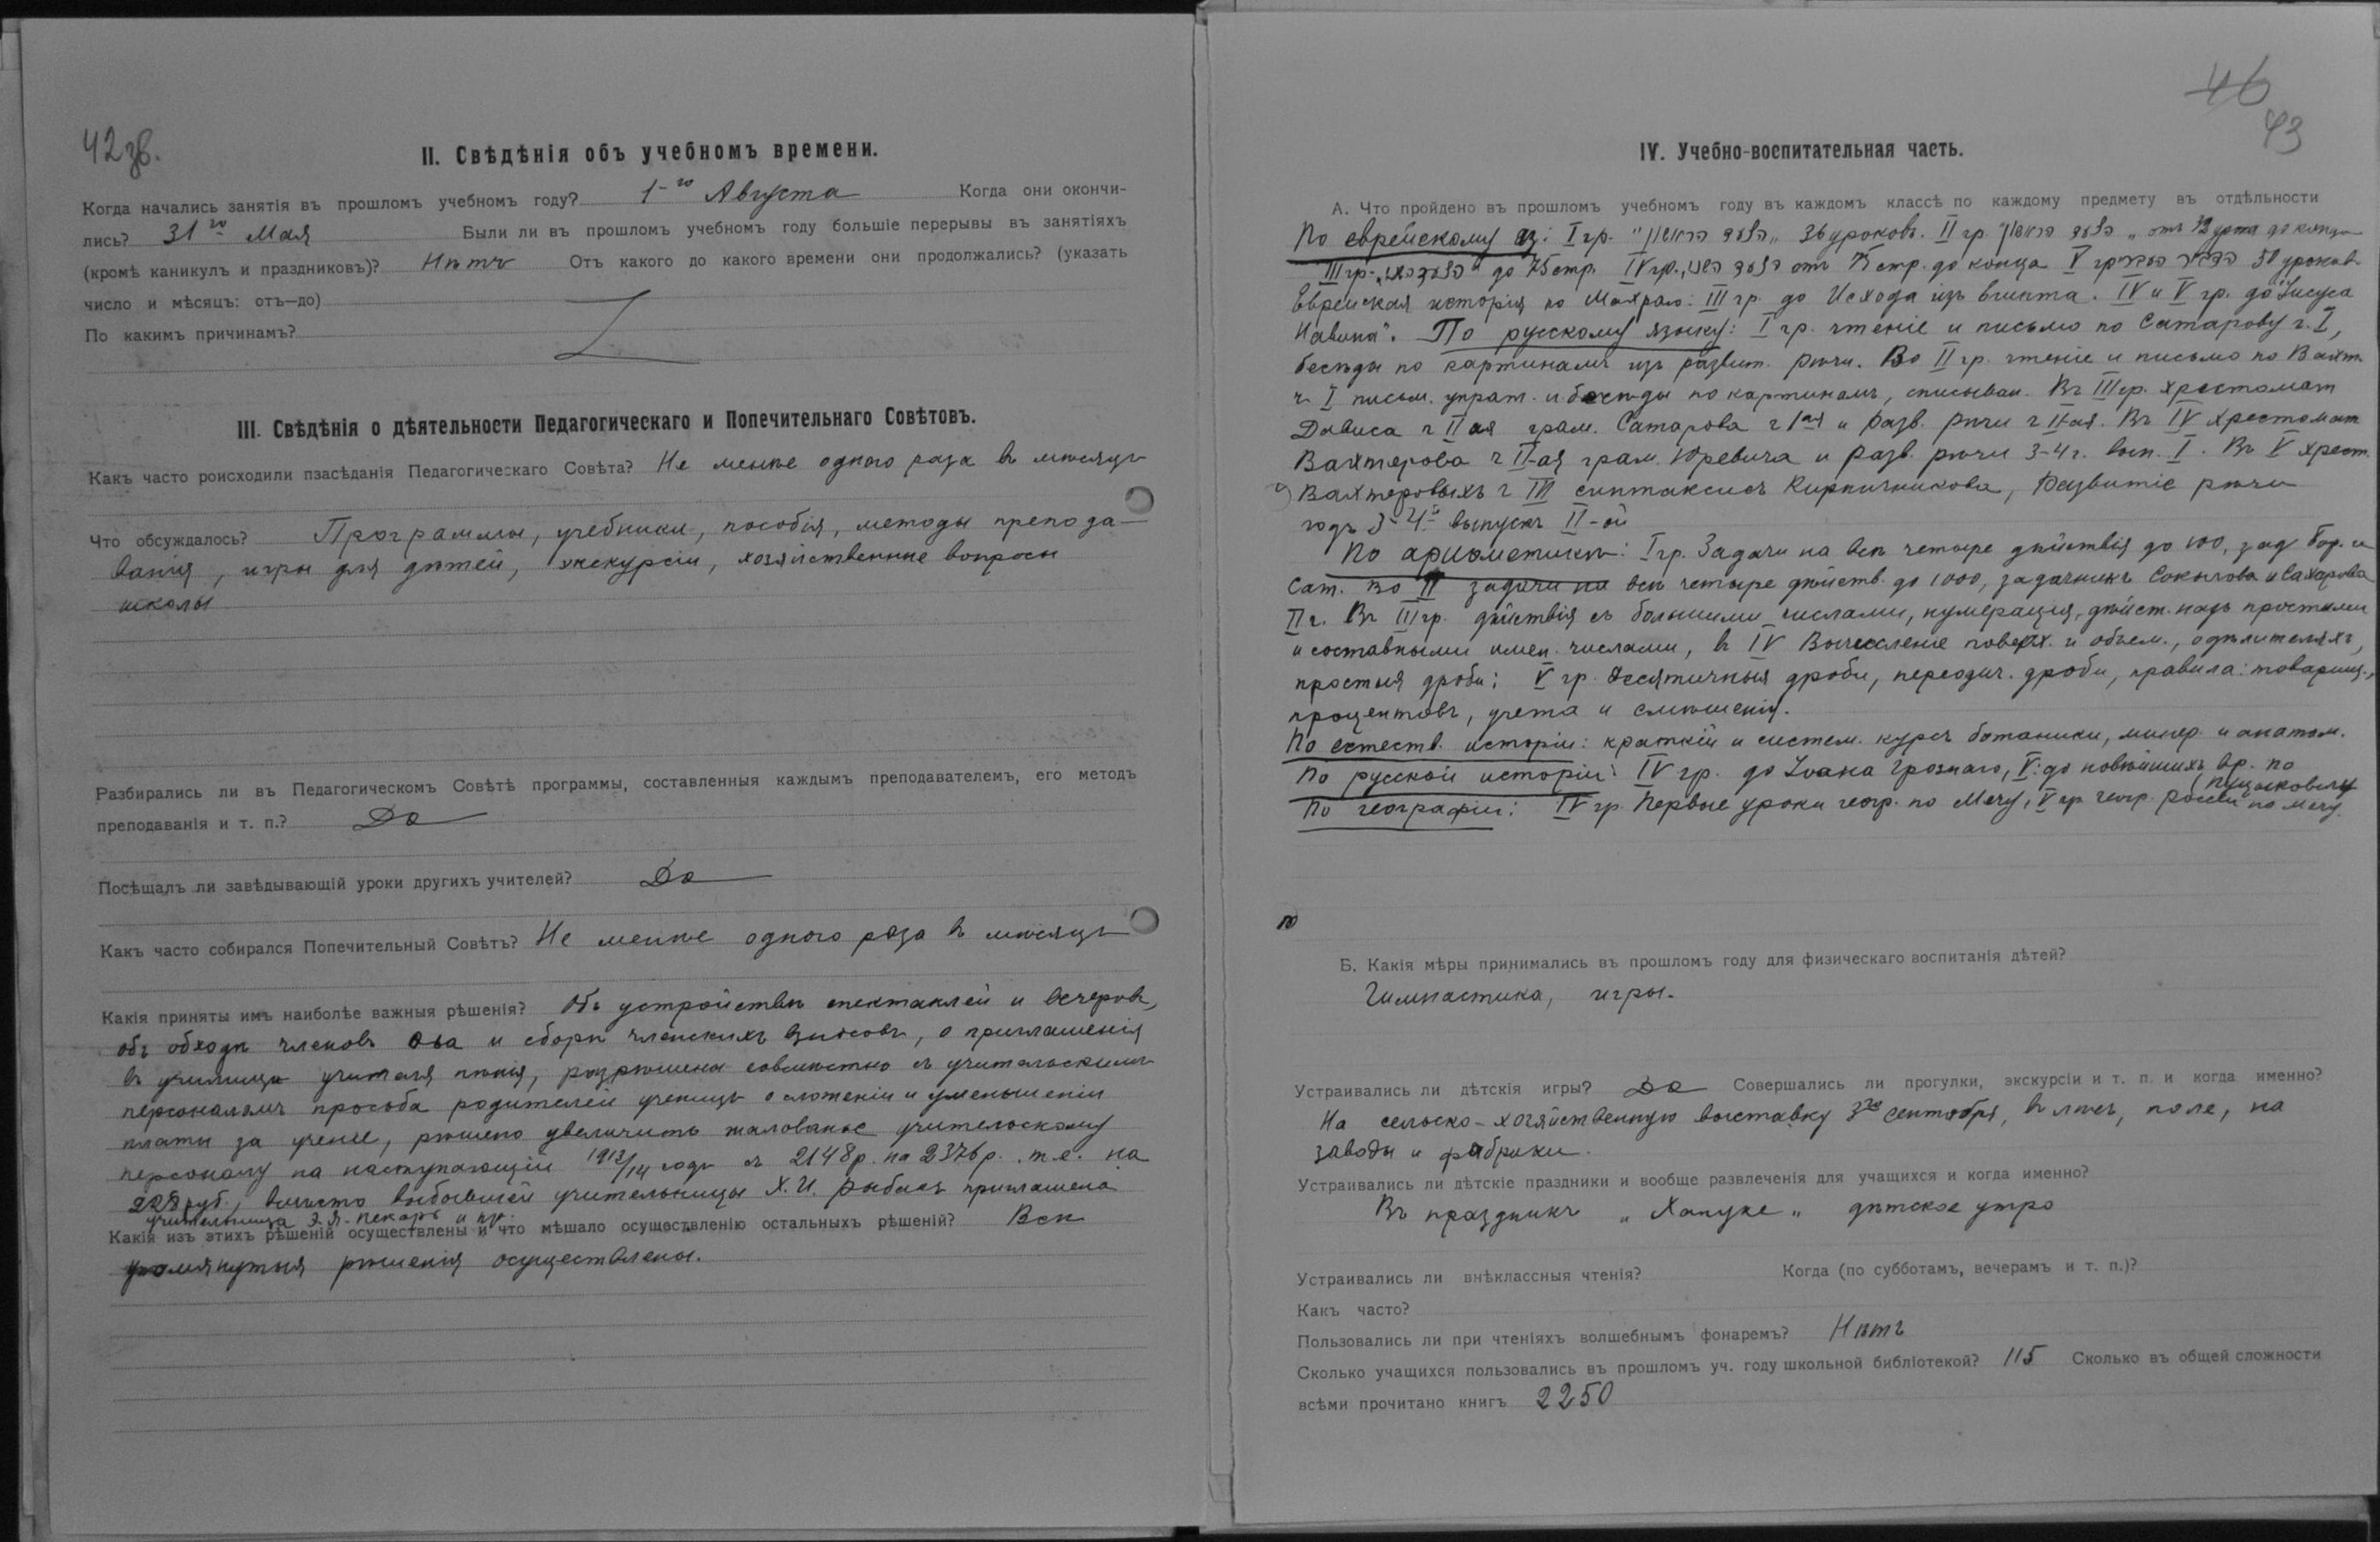 42 зв.
II. Свѣдѣнія объ учебномъ времени.
Когда начались занятія въ прошломъ учебномъ году? 1-го Августа Когда они окончи-
лись? 31го Мая Были ли въ прошломъ учебномъ году большіе перерывы въ занятіяхъ
(кромѣ каникулъ и праздниковъ)? Нѣтъ Отъ какого до какого времени они продолжались? (указать
число и мѣсяцъ: отъ—до)
По какимъ причинамъ?
III. Свѣдѣнія о дѣятельности Педагогическаго и Попечительнаго Совѣтовъ.
Какъ часто роисходили пзасѣданія Педагогическаго Совѣта? Не менѣе одного раза въ мѣсяцъ
Что обсуждалось? Программы, учебники, пособія, методы препода-
ванія, игры для дѣтей, экскурсіи, хозяйственные вопросы
школы
Разбирались ли въ Педагогическомъ Совѣтѣ программы, составленныя каждымъ преподавателемъ, его методъ
преподаванія и т. п.? Да
Посѣщалъ ли завѣдывающій уроки другихъ учителей? Да
Какъ часто собирался Попечительный Совѣтъ? Не менѣе одного раза въ мѣсяцъ
Какія приняты имъ наиболѣе важныя рѣшенія? Объ устройствѣ спектаклей и вечеровъ,
объ обходѣ членовъ О-ва и сборѣ членскихъ взносовъ, о приглашенія
въ училище учителя пѣнія, разрѣшена совмѣстно съ учительскимъ
персоналомъ просьба родителей ученицъ о сложеніи и уменьшеніи
платы за ученіе, рѣшено увеличить жалованье учительскому
персоналу на наступающій 1913/14 годъ съ 2148 р. на 2376 р. т.е. на
228 руб., вмѣсто выбывшей учительницы Х. И. Рыбакъ приглашена
учительница Э. Я. Пекарь и пр.
Какія изъ этихъ рѣшеній осуществлены и что мѣшало осуществленію остальныхъ рѣшеній? Всѣ
упомянутыя рѣшенія осуществлены.
46
43
IV. Учебно-воспитательная часть.
А. Что пройдено въ прошломъ учебномъ году въ каждомъ классѣ по каждому предмету въ отдѣльности
По еврейскому яз: I гр. 36 уроковъ. II гр. до конца
III гр. до 75 стр. IV гр. отъ 75 стр. до конца V гр 50 уроковъ
Еврейская исторія по III гр. до Исхода изъ Египта. IV и V гр. до "Іисуса
Навина". По русскому языку: I гр. чтеніе и письмо по Сатарову г. I,
бесѣды по картинамъ изъ развит. рѣчи. Во II гр. чтеніе и письмо по Вахт.
ч. I письм. упраж. и бесѣды по картинамъ, списыван. Въ III гр. Хрестомат
Дависа ч II ая грам. Сатарова г Iая и разв. рѣчи г II-ая. Въ IV хрестомат
Вахтерова ч II-ая грам. Юревича и разв. рѣчи 3-4 г. вып. I. Въ V хрест.
Вахтеровыхъ г III синтаксисъ Кирпичникова, Развитіе рѣчи
годъ 3-4й выпускъ II-ой
По ариѳметикѣ: I гр. Задачи на всѣ четыре дѣйствія до 100, зад. Бор. и
Сат. Во II задачи на всѣ четыре дѣйств. до 1000, задачникъ Соколова и Сахарова
II г. Въ III гр. дѣйствія съ большими числами, нумерація, дѣйст. надъ простыми
и составными имен. числами, въ IV Вычесленіе поверх. и объем., о дѣлителяхъ,
простыя дроби; V гр. Десятичныя дроби, переодич. дроби, правила: товарищ.,
процентовъ, учета и смѣшенія.
По естеств. исторіи: краткій и систем. курсъ ботаники, минер. и анатом.
По русской исторіи: IV гр. до Іоана Грознаго, V: до новѣйшихъ вр. по
Пуцыковичу
По географіи: IV гр. Первые уроки геогр. по Мечу, V гр. геогр. Россіи по Мечу.
Б. Какія мѣры принимались въ прошломъ году для физическаго воспитанія дѣтей?
Гимнастика, игры.
Устраивались ли дѣтскія игры? Да Совершались ли прогулки, экскурсіи и т. п. и когда именно?
На сельско-хозяйственную выставку 3го сентября, въ лѣсъ, поле, на
заводы и фабрики.
Устраивались ли дѣтскіе праздники и вообще развлеченія для учащихся и когда именно?
Въ праздникъ „Хануке„ дѣтское утро
Устраивались ли внѣклассныя чтенія? Когда (по субботамъ, вечерамъ и т. п.)?
Какъ часто?
Пользовались ли при чтеніяхъ волшебнымъ фонаремъ? Нѣтъ
Сколько учащихся пользовались въ прошломъ уч. году школьной библіотекой? 115 Сколько въ общей сложности
всѣми прочитано книгъ 2250